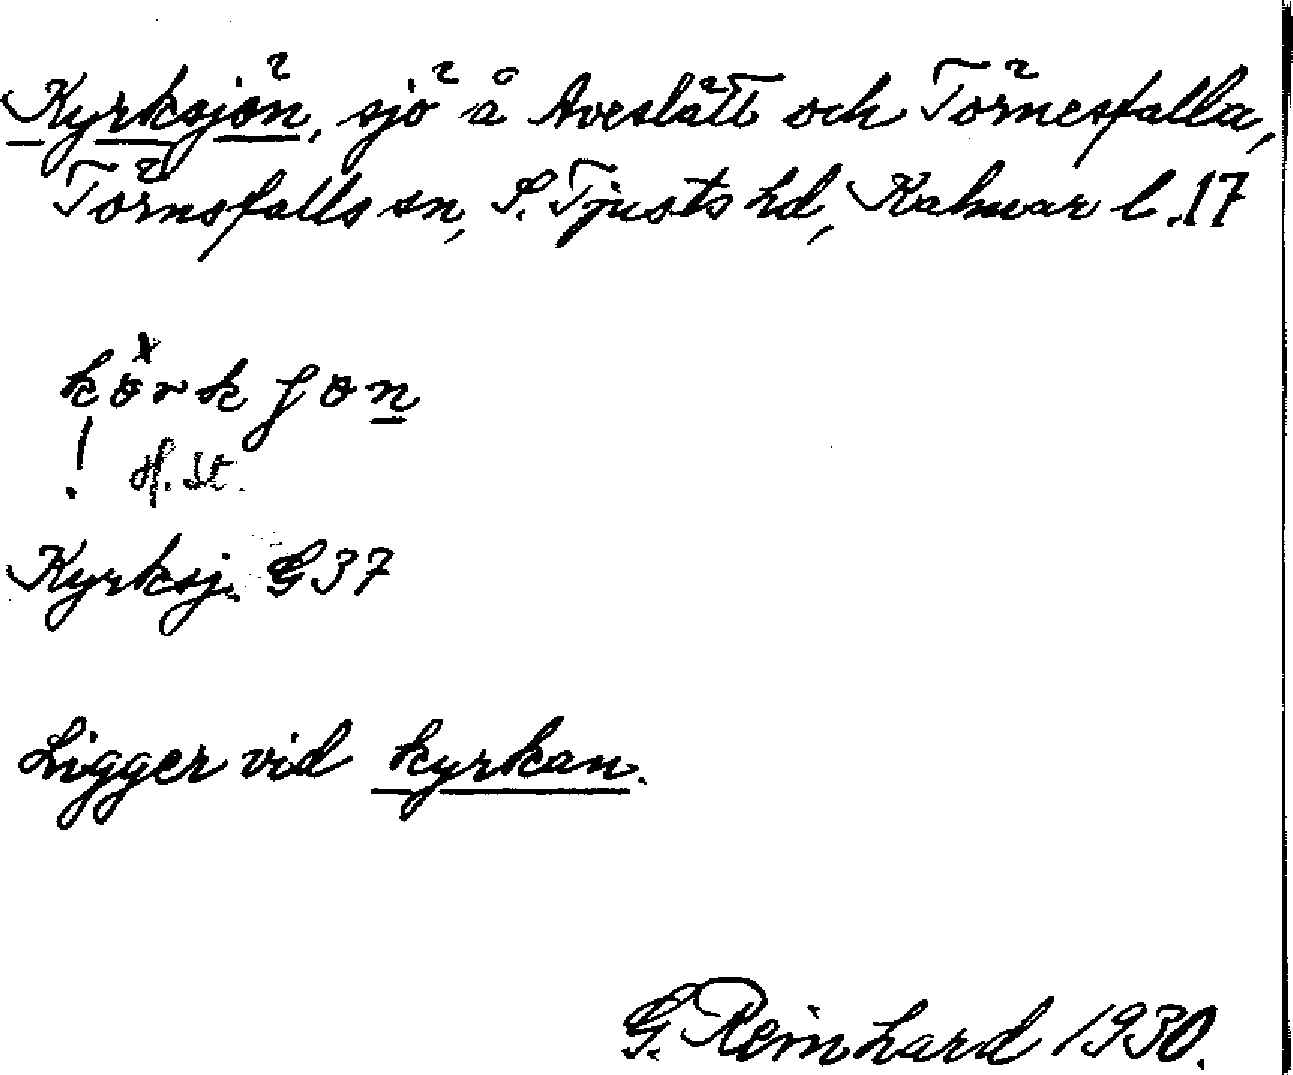 Kyrksjön, sjö å Aveslätt och Törnesfalla,
Törnsfalls sn, S. Tjusts hd, Kalmar l. 17
körkʃon
! H. St.
Kyrksj. G37
Ligger vid kyrkan.
G. Reinhard 1930.